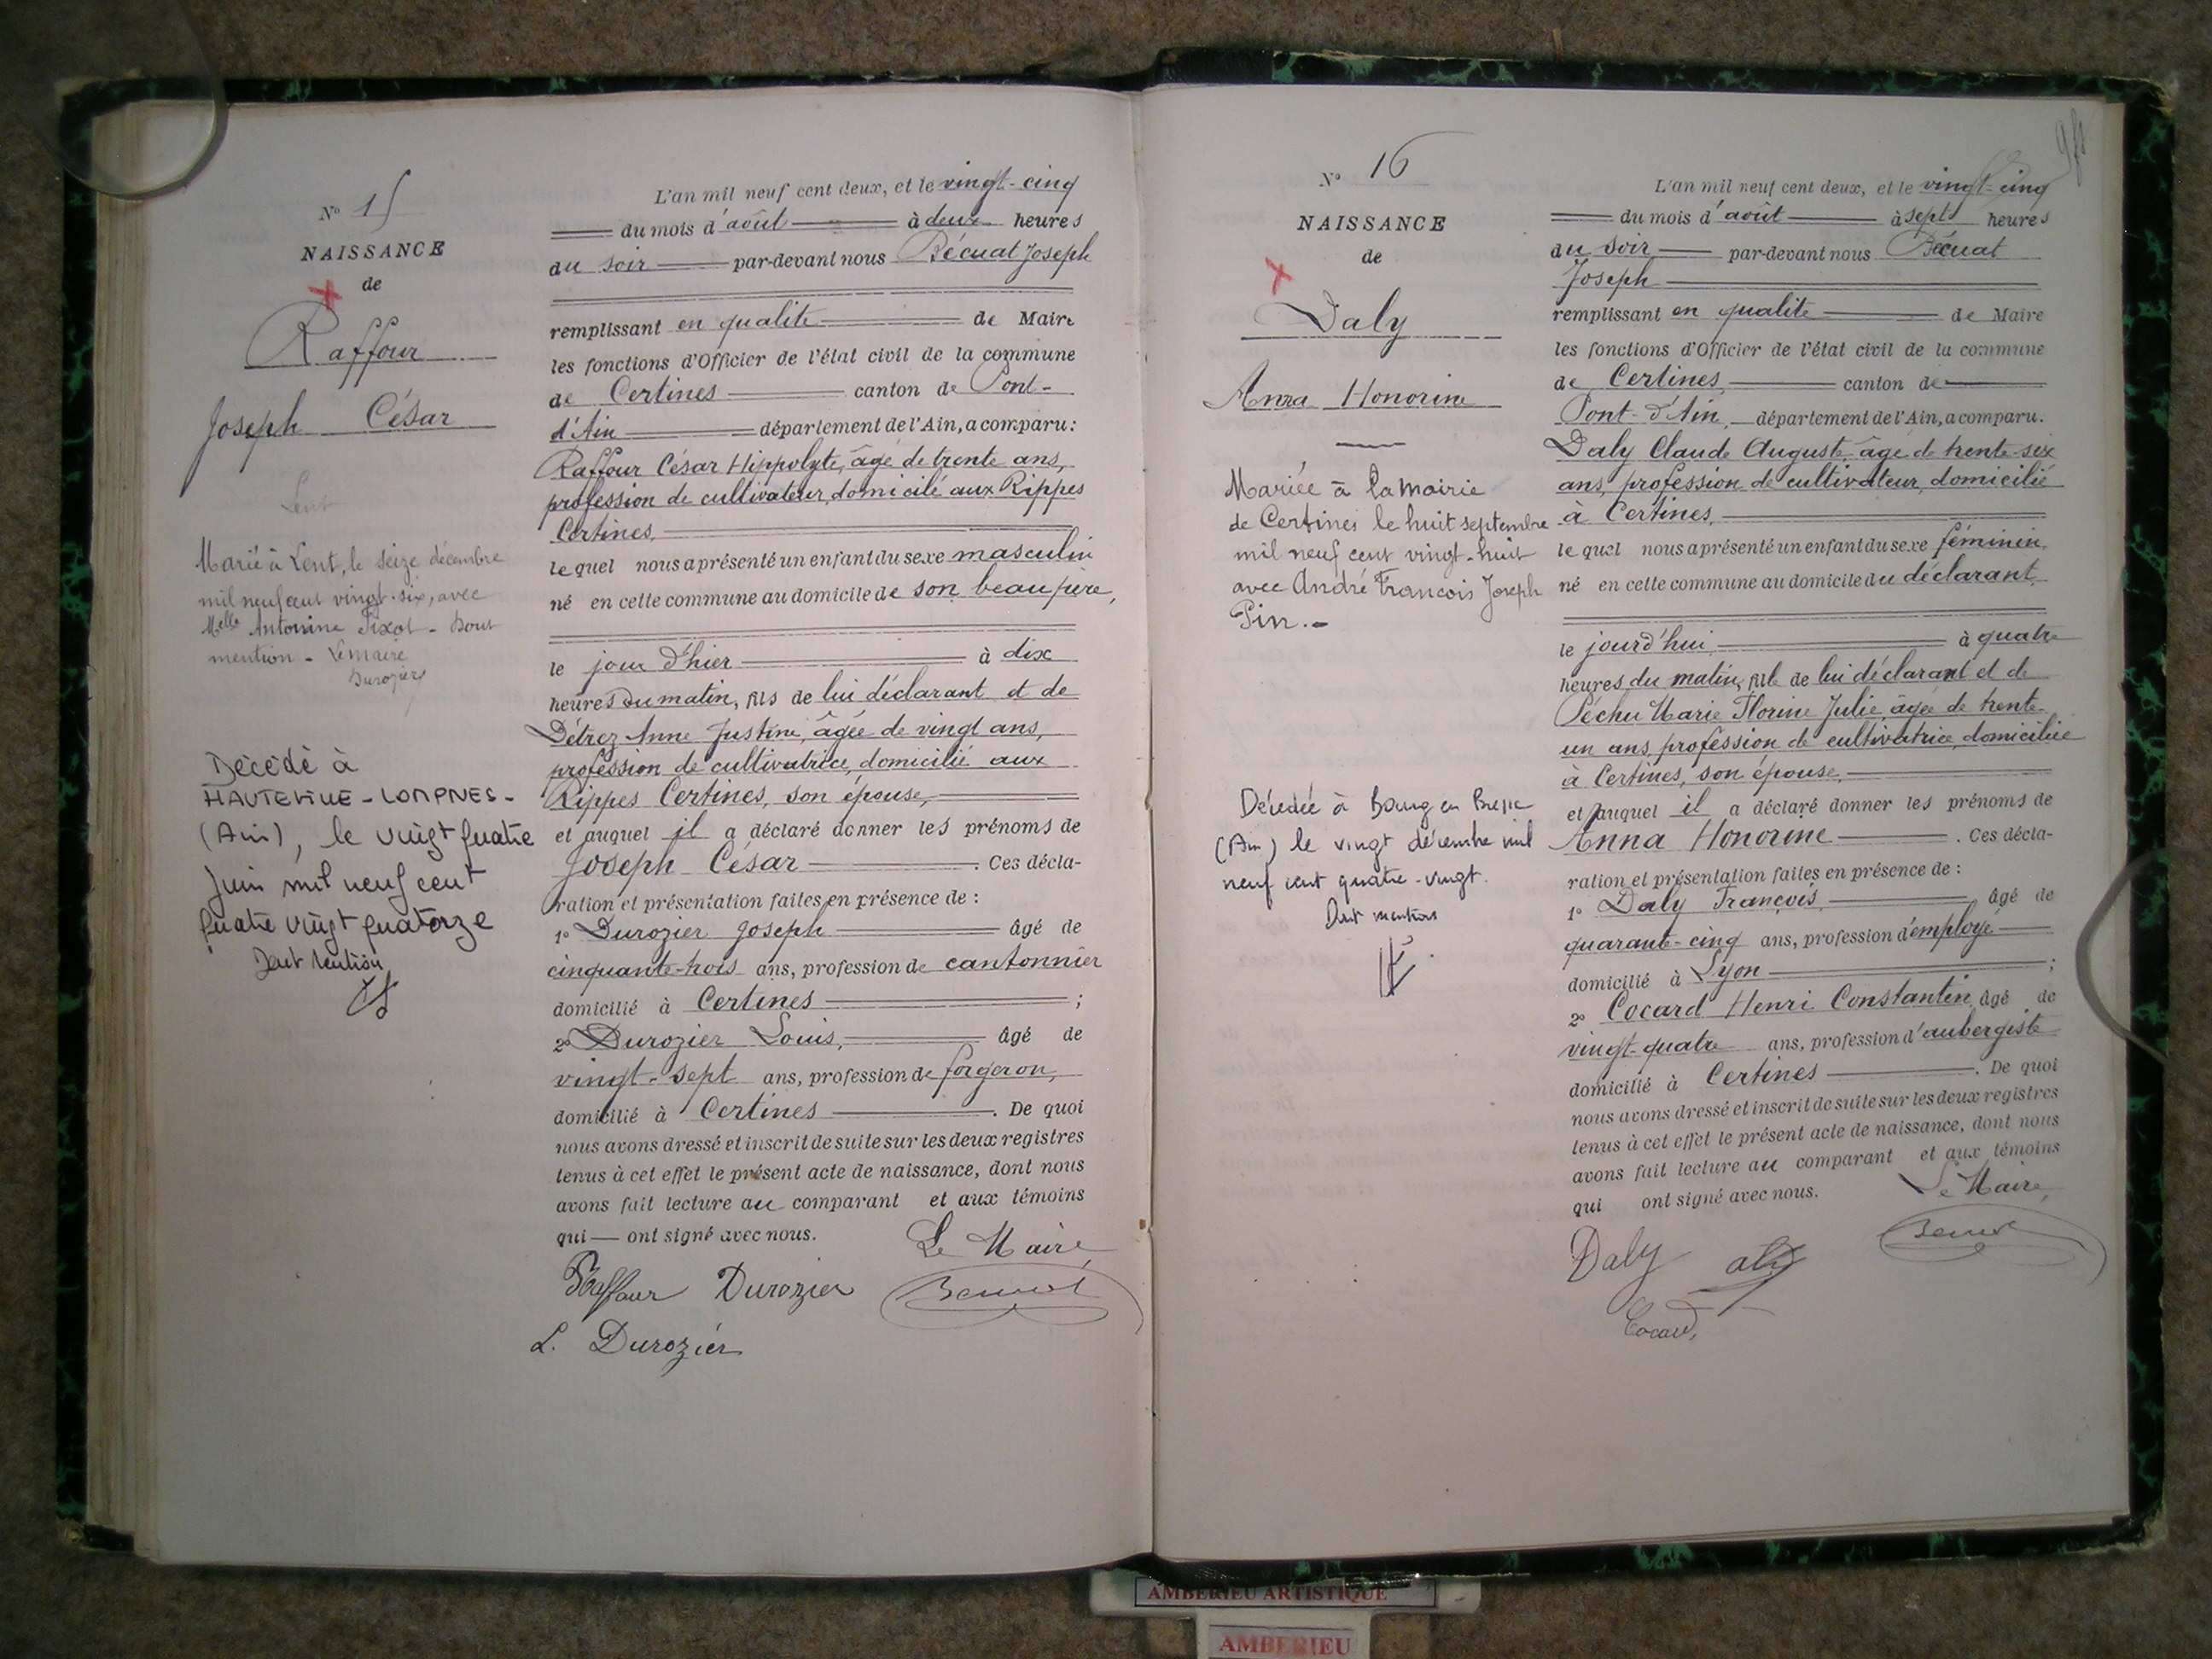 Nº 15
NAISSANCE
de
Raffour
Joseph César
Lent
Marié à Lent, le seize décembre
mil neuf cent vingt-six, avec
Melle Antonine Pixot - Dont
mention - Le maire
Durozier
Décédé à
HAUTEVILLE-LOMPNES-
(Ain), le vingt quatre
juin mil neuf cent
quatre vingt quatorze
Dont mention
L'an mil neuf cent deux, et le vingt-cinq
du mois d'août à deux heures
du soir par-devant nous Bécuat Joseph
remplissant en qualité de Maire
les fonctions d'Officier de l'état civil de la commune
de Certines canton de Pont-
d'Ain département de l'Ain, a comparu:
Raffour César Hippolyte, âgé de trente ans,
profession de cultivateur, domicilié aux Rippes
Certines
lequel nous a présenté un enfant du sexe masculin
né en cette commune au domicile de son beau père,
le jour d'hier à dix
heures du matin, fils de lui déclarant et de
Détrez Anne Justine, âgée de vingt ans,
profession de cultivatrice, domicilié aux
Rippes Certines, son épouse,
et auquel il a déclaré donner les prénoms de
Joseph César . Ces décla-
ration et présentation faites en présence de :
1º Durozier Joseph âgé de
cinquante-trois ans, profession de cantonnier
domicilié à Certines ;
2º Durozier Louis, âgé de
vingt-sept ans, profession de forgeron,
domicilié à Certines . De quoi
nous avons dressé et inscrit de suite sur les deux registres
tenus à cet effet le présent acte de naissance, dont nous
avons fait lecture au comparant et aux témoins
qui — ont signé avec nous.
Le Maire,
Raffour Durozier Bécuat
L. Durozier
Nº 16
NAISSANCE
de
Daly
Anna Honorine
Mariée à la mairie
de Certines le huit septembre
mil neuf cent vingt-huit
avec André François Joseph
Pin.-
Décédée à Bourg en Bresse
(Ain) le vingt décembre mil
neuf cent quatre-vingt.
Dont mention
L'an mil neuf cent deux, et le vingt-cinq
du mois d'août à sept heures
du soir par-devant nous Bécuat
Joseph
remplissant en qualité de Maire
les fonctions d'Officier de l'état civil de la commune
de Certines canton de
Pont-d'Ain, département de l'Ain, a comparu.
Daly Claude Auguste, âgé de trente-six
ans, profession de cultivateur, domicilié
à Certines,
lequel nous a présenté un enfant du sexe féminin
né en cette commune au domicile du déclarant,
le jourd'hui, à quatre
heures du matin, fille de lui déclarant et de
Péchu Marie Florine Julie, âgée de trente-
un ans, profession de cultivatrice, domiciliée
à Certines, son épouse,
et auquel il a déclaré donner les prénoms de
Anna Honorine . Ces décla-
ration et présentation faites en présence de :
1º Daly François, âgé de
quarante-cinq ans, profession d'employé
domicilié à Lyon ;
2º Cocard Henri Constantin, âgé de
vingt-quatre ans, profession d'aubergiste
domicilié à Certines . De quoi
nous avons dressé et inscrit de suite sur les deux registres
tenus à cet effet le présent acte de naissance, dont nous
avons fait lecture au comparant et aux témoins
qui ont signé avec nous.
Le Maire,
Daly Bécuat
Cocard,
AMBERIEU ARTISTIQUE
AMBERIEU